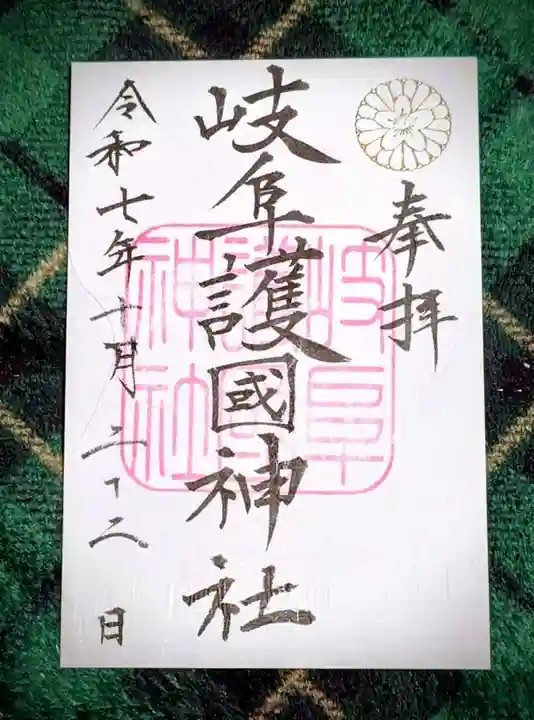 奉拝
岐阜護國神社
岐阜護國神社
令和七年十月二十二日